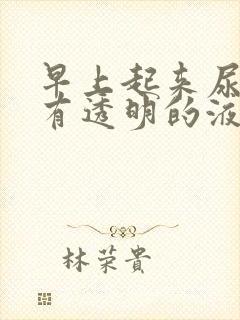 早上起来尿
有透明的液
林荣貴